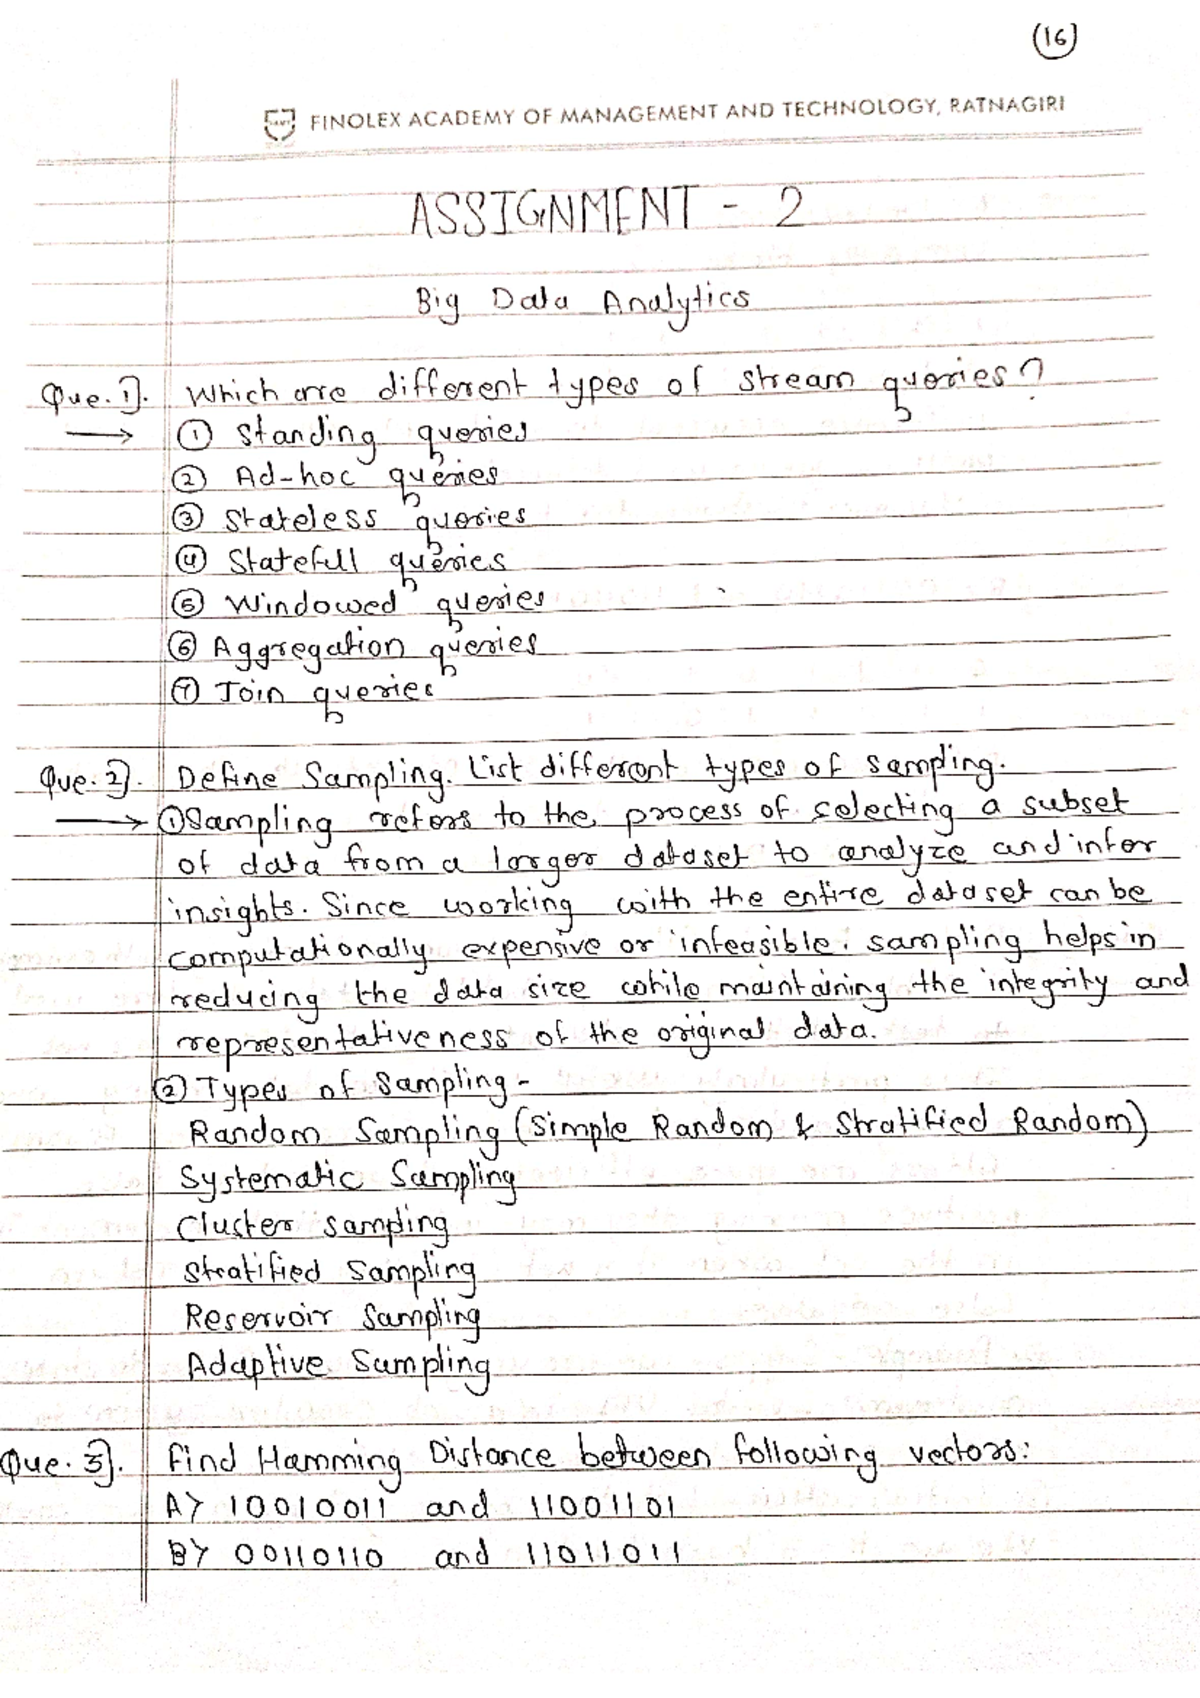 16
FINOLEX ACADEMY OF MANAGEMENT AND TECHNOLOGY, RATNAGIRI
ASSIGNMENT - 2
Big Data Analytics
Que. 1]. Which are different types of stream queries?
→ ① Standing queries
② Ad-hoc queries
③ Stateless queries
④ Statefull queries
⑤ Windowed queries
⑥ Aggregation queries
⑦ Join queries
Que. 2]. Define Sampling. List different types of sampling.
→ ① Sampling refers to the process of selecting a subset
of data from a larger dataset to analyze and infer
insights. Since working with the entire dataset can be
computationally expensive or infeasible. sampling helps in
reducing the data size while maintaining the integrity and
representativeness of the original data.
② Types of Sampling -
Random Sampling (Simple Random & Stratified Random)
Systematic Sampling
Cluster sampling
Stratified Sampling
Reservoir Sampling
Adaptive Sampling
Que. 3]. Find Hamming Distance between following vectors:
A> 10010011 and 11001101
B> 00110110 and 11011011